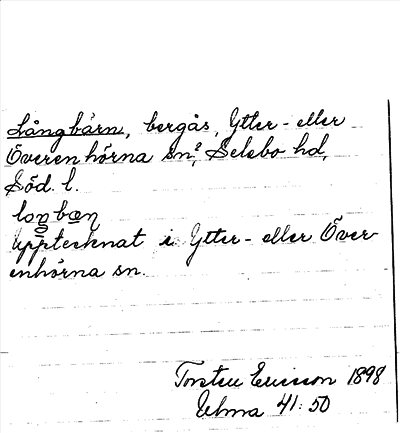 Långbårn, bergås, Ytter- eller
Överenhörna sn?, Selebo hd,
Söd. l.
Upptecknat i Ytter- eller Över-
enhörna sn.
Torsten Ericsson 1898
Ulma 41:50